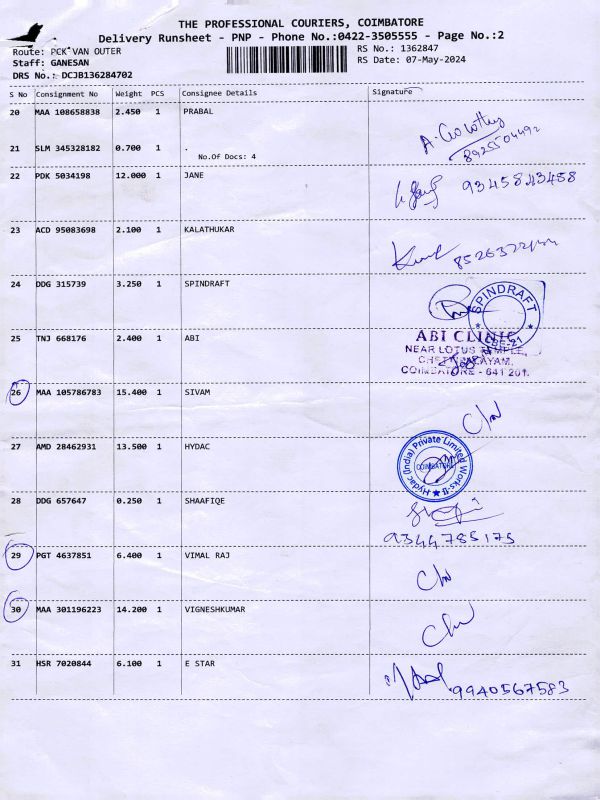 THE PROFESSIONAL COURIERS, COIMBATORE
Delivery Runsheet - PNP - Phone No.:0422-3505555 - Page No.:2
Route: PCK VAN OUTER
RS No.: 1362847
Staff: GANESAN
RS Date: 07-May-2024
DRS No.: DCJB136284702
S No Consignment No Weight PCS Consignee Details Signature
20 MAA 108658838 2.450 1 PRABAL
21 SLM 345328182 0.700 1 .
8925504492
No.Of Docs: 4
22 PDK 5034198 12.000 1 JANE
9345843458
23 ACD 95083698 2.100 1 KALATHUKAR
24 DDG 315739 3.250 1 SPINDRAFT
SPINDRAFT
CBE-21
25 TNJ 668176 2.400 1 ABI
ABI CLINIC
NEAR LOTUS TEMPLE,
COIMBATORE - 641 201.
26 MAA 105786783 15.400 1 SIVAM
27 AMD 28462931 13.500 1 HYDAC
Hydac (India) Private Limited
COIMBATORE
Works-II
28 DDG 657647 0.250 1 SHAAFIQE
9344785175
29 PGT 4637851 6.400 1 VIMAL RAJ
30 MAA 301196223 14.200 1 VIGNESHKUMAR
31 HSR 7020844 6.100 1 E STAR
9940567583